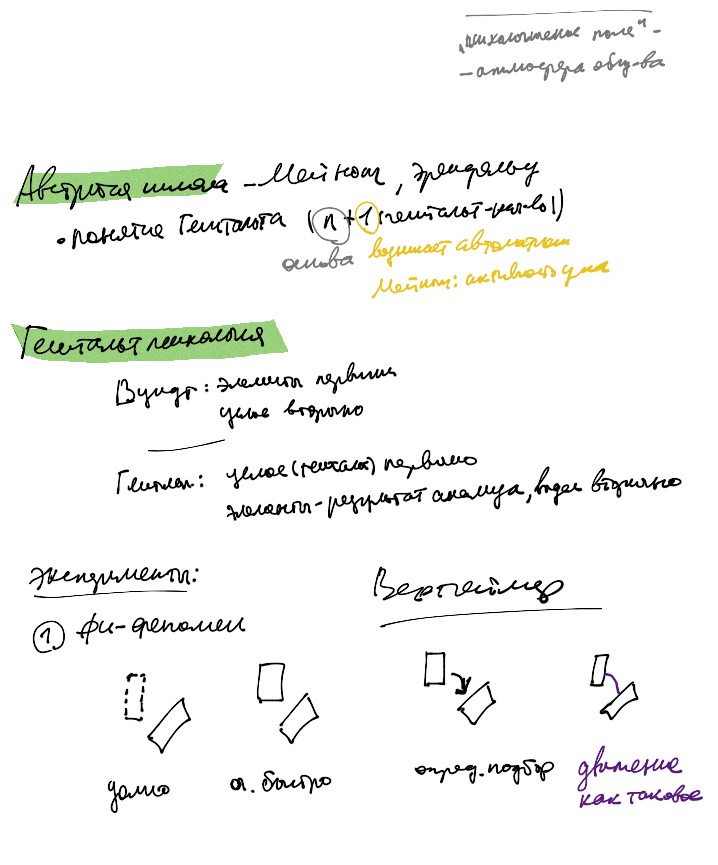 "психологическое поле" -
- атмосфера общ-ва
Австрийская школа - Мейнонг, Эренфельц
• понятие Гештальта (n + 1 (гештальт-кач-во))
основа возникает автоматич
Мейнонг: активность ума
Гештальт психология
Вундт: элементы первичны
целое вторично
Гештальт: целое (гештальт) первично
элементы - результат анализа, вторично
Эксперименты:
Вертгеймер
① фи-феномен
долго
оч. быстро
опред. подбор
движение
как таковое